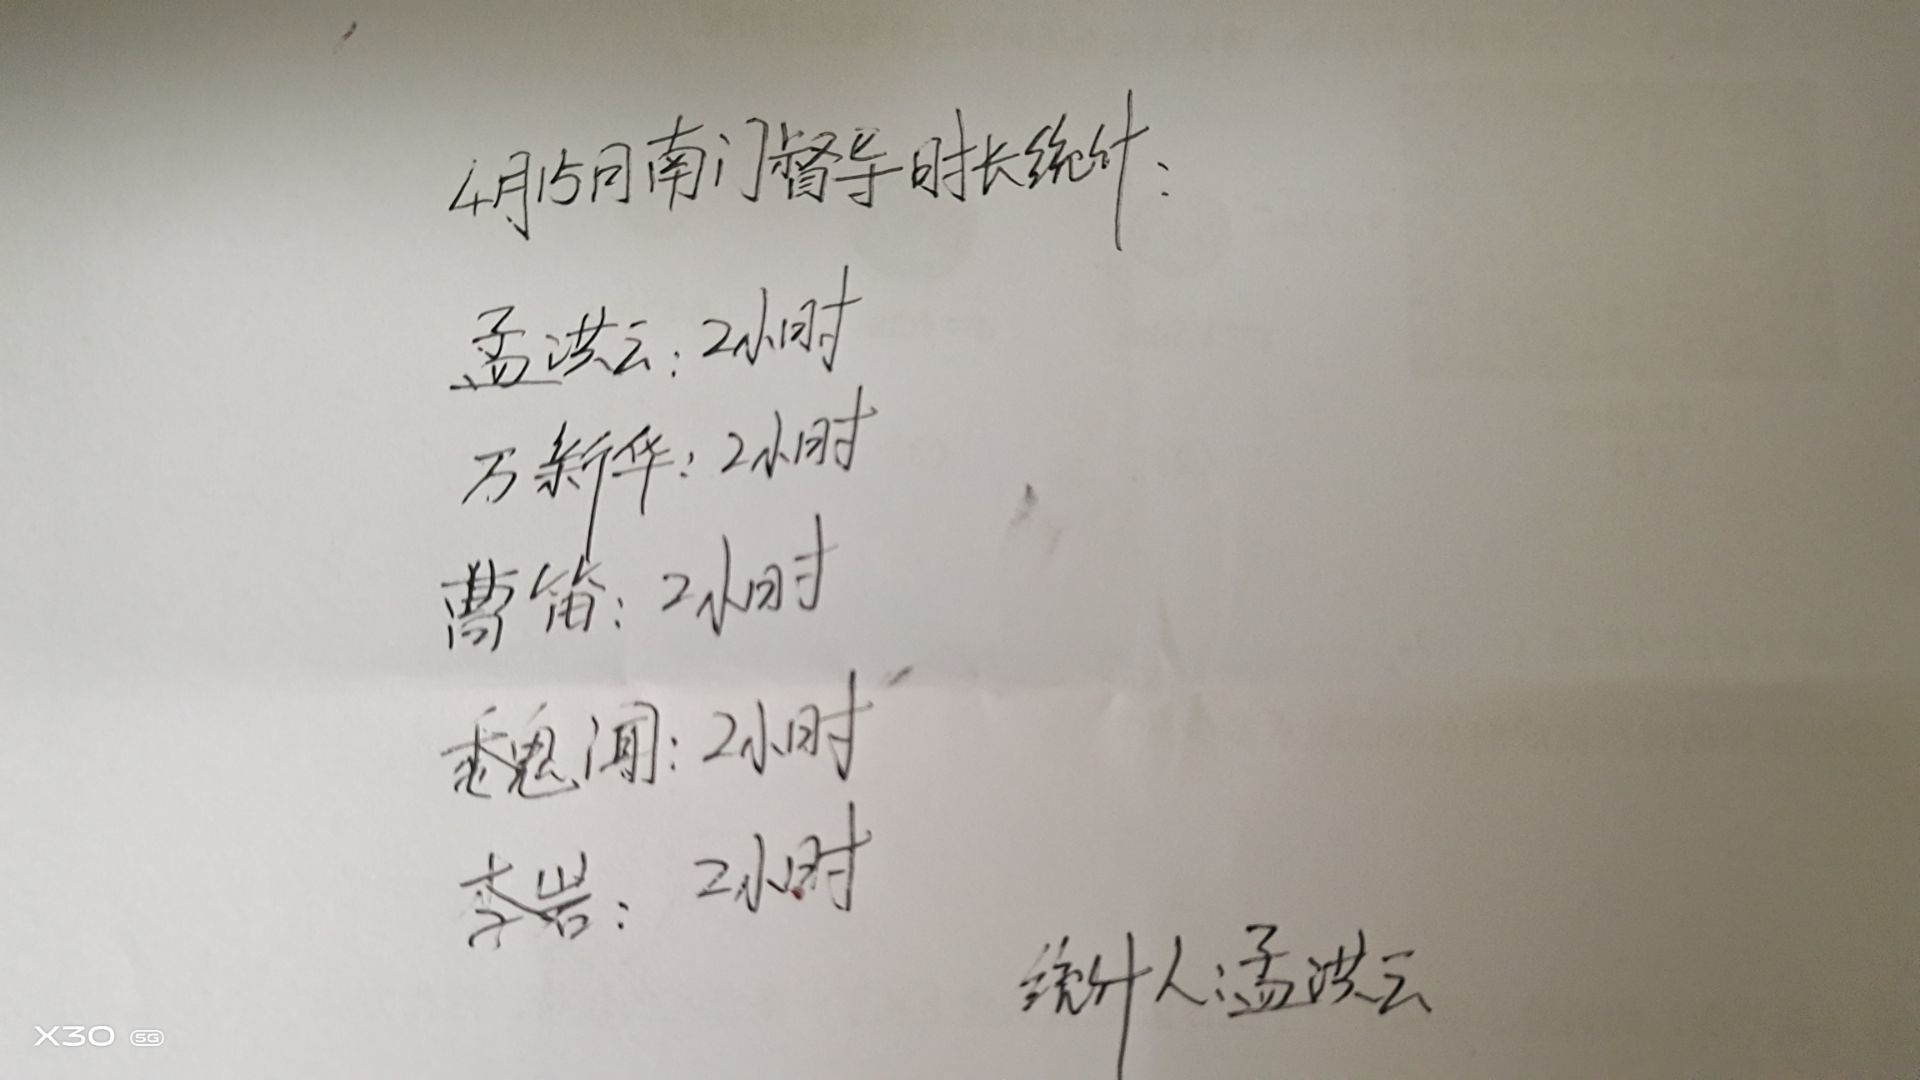 4月15日南门督导时长统计:
孟洪云:2小时
万新华:2小时
曹笛:2小时
魏闻:2小时
李岩:2小时
统计人:孟洪云
X30 5G